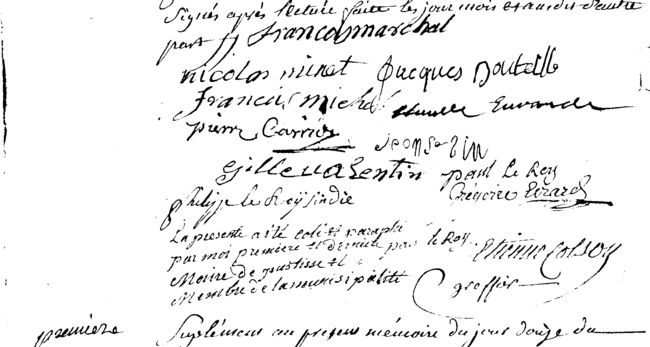 Signés après lecture faite les jour mois et an susdit d'autre
part ff. francois marchal
nicolas minet Jacques Bouteille
Francois michel Evrard
pierre Carrier
jeonsin
Gille valentin paul Le Roy
philippe le Roy sindic Gregoire Evrard
La presente a été coté et paraphé
par moi premiere et derniere paul le Roy Etienne Colson
Maire de justisse et
Membre de la municipalité greffier
premiere Suplément au présent mémoire du jour douze du